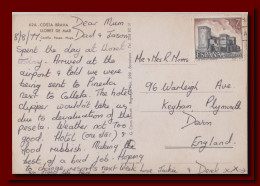 824 - COSTA BRAVA
LLORET DE MAR
8/8/77
Dear Mum
Dad &
Spent the day at
Arrived at the
airport & told we were
being sent to Pineda
next to Calella. The hotels
clipper wouldn't take us
due to devaluation of the
peseta. Weather not too
good. Hotel (one star) &
food rubbish. Making the
best of a bad job. Hoping
to change
next week
love
& Dad xxx
ESPAÑA
Mr & Mrs R. Mims
96 Warleigh Ave
Keyham Plymouth
Devon
England.